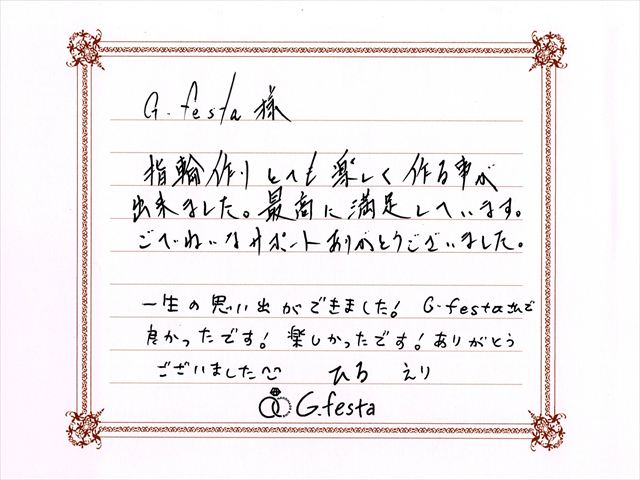 G.festa 様
指輪作りとても楽しく作る事が
出来ました。最高に満足しています。
ごていねいなサポートありがとうございました。
一生の思い出ができました! G.festaさんで
良かったです! 楽しかったです! ありがとう
ございました
ひろ えり
G.festa